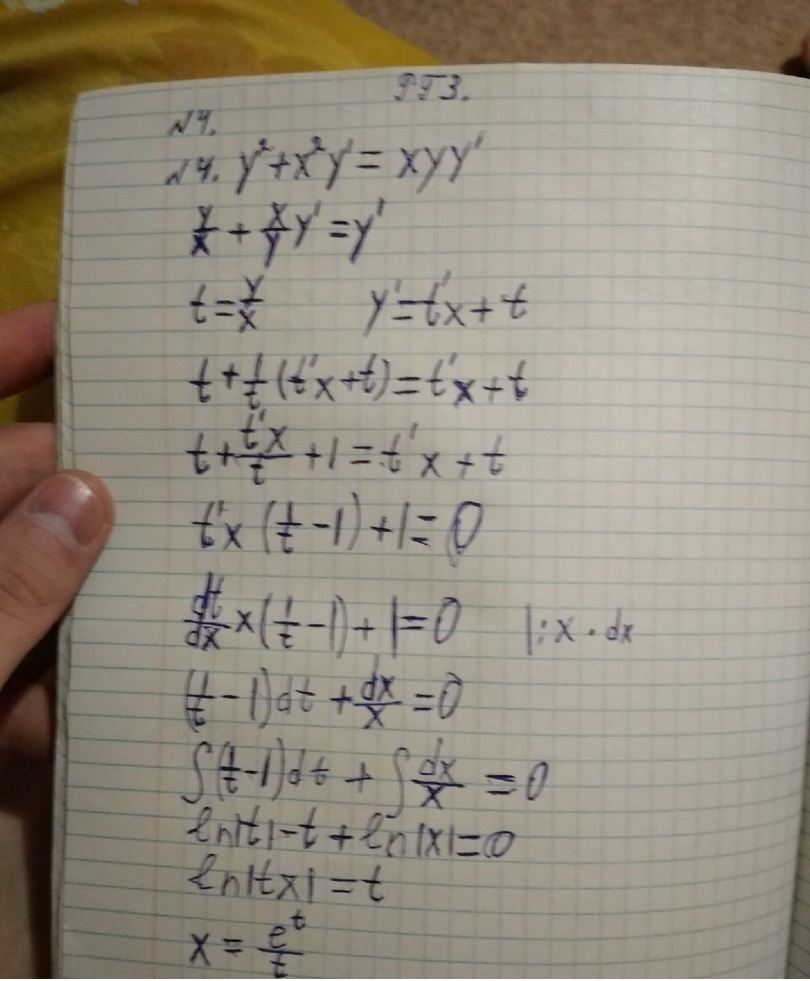 РГЗ.
№4.
№4. y² + x²y' = xyy'
y/x + x/y y' = y'
t = y/x y' = t'x + t
t + 1/t (t'x + t) = t'x + t
t + t'x/t + 1 = t'x + t
t'x (1/t - 1) + 1 = 0
dt/dx x (1/t - 1) + 1 = 0 |: x · dx
(1/t - 1)dt + dx/x = 0
∫(1/t - 1)dt + ∫ dx/x = 0
ln|t| - t + ln|x| = 0
ln|tx| = t
x = e^t/t